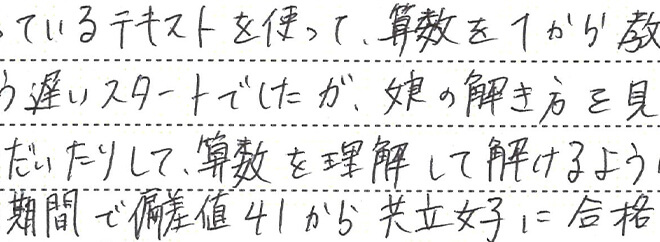 ているテキストを使って、算数を1から教
う遅いスタートでしたが、娘の解き方を見
だいたりして、算数を理解して解けるよう
期間で偏差値41から共立女子に合格